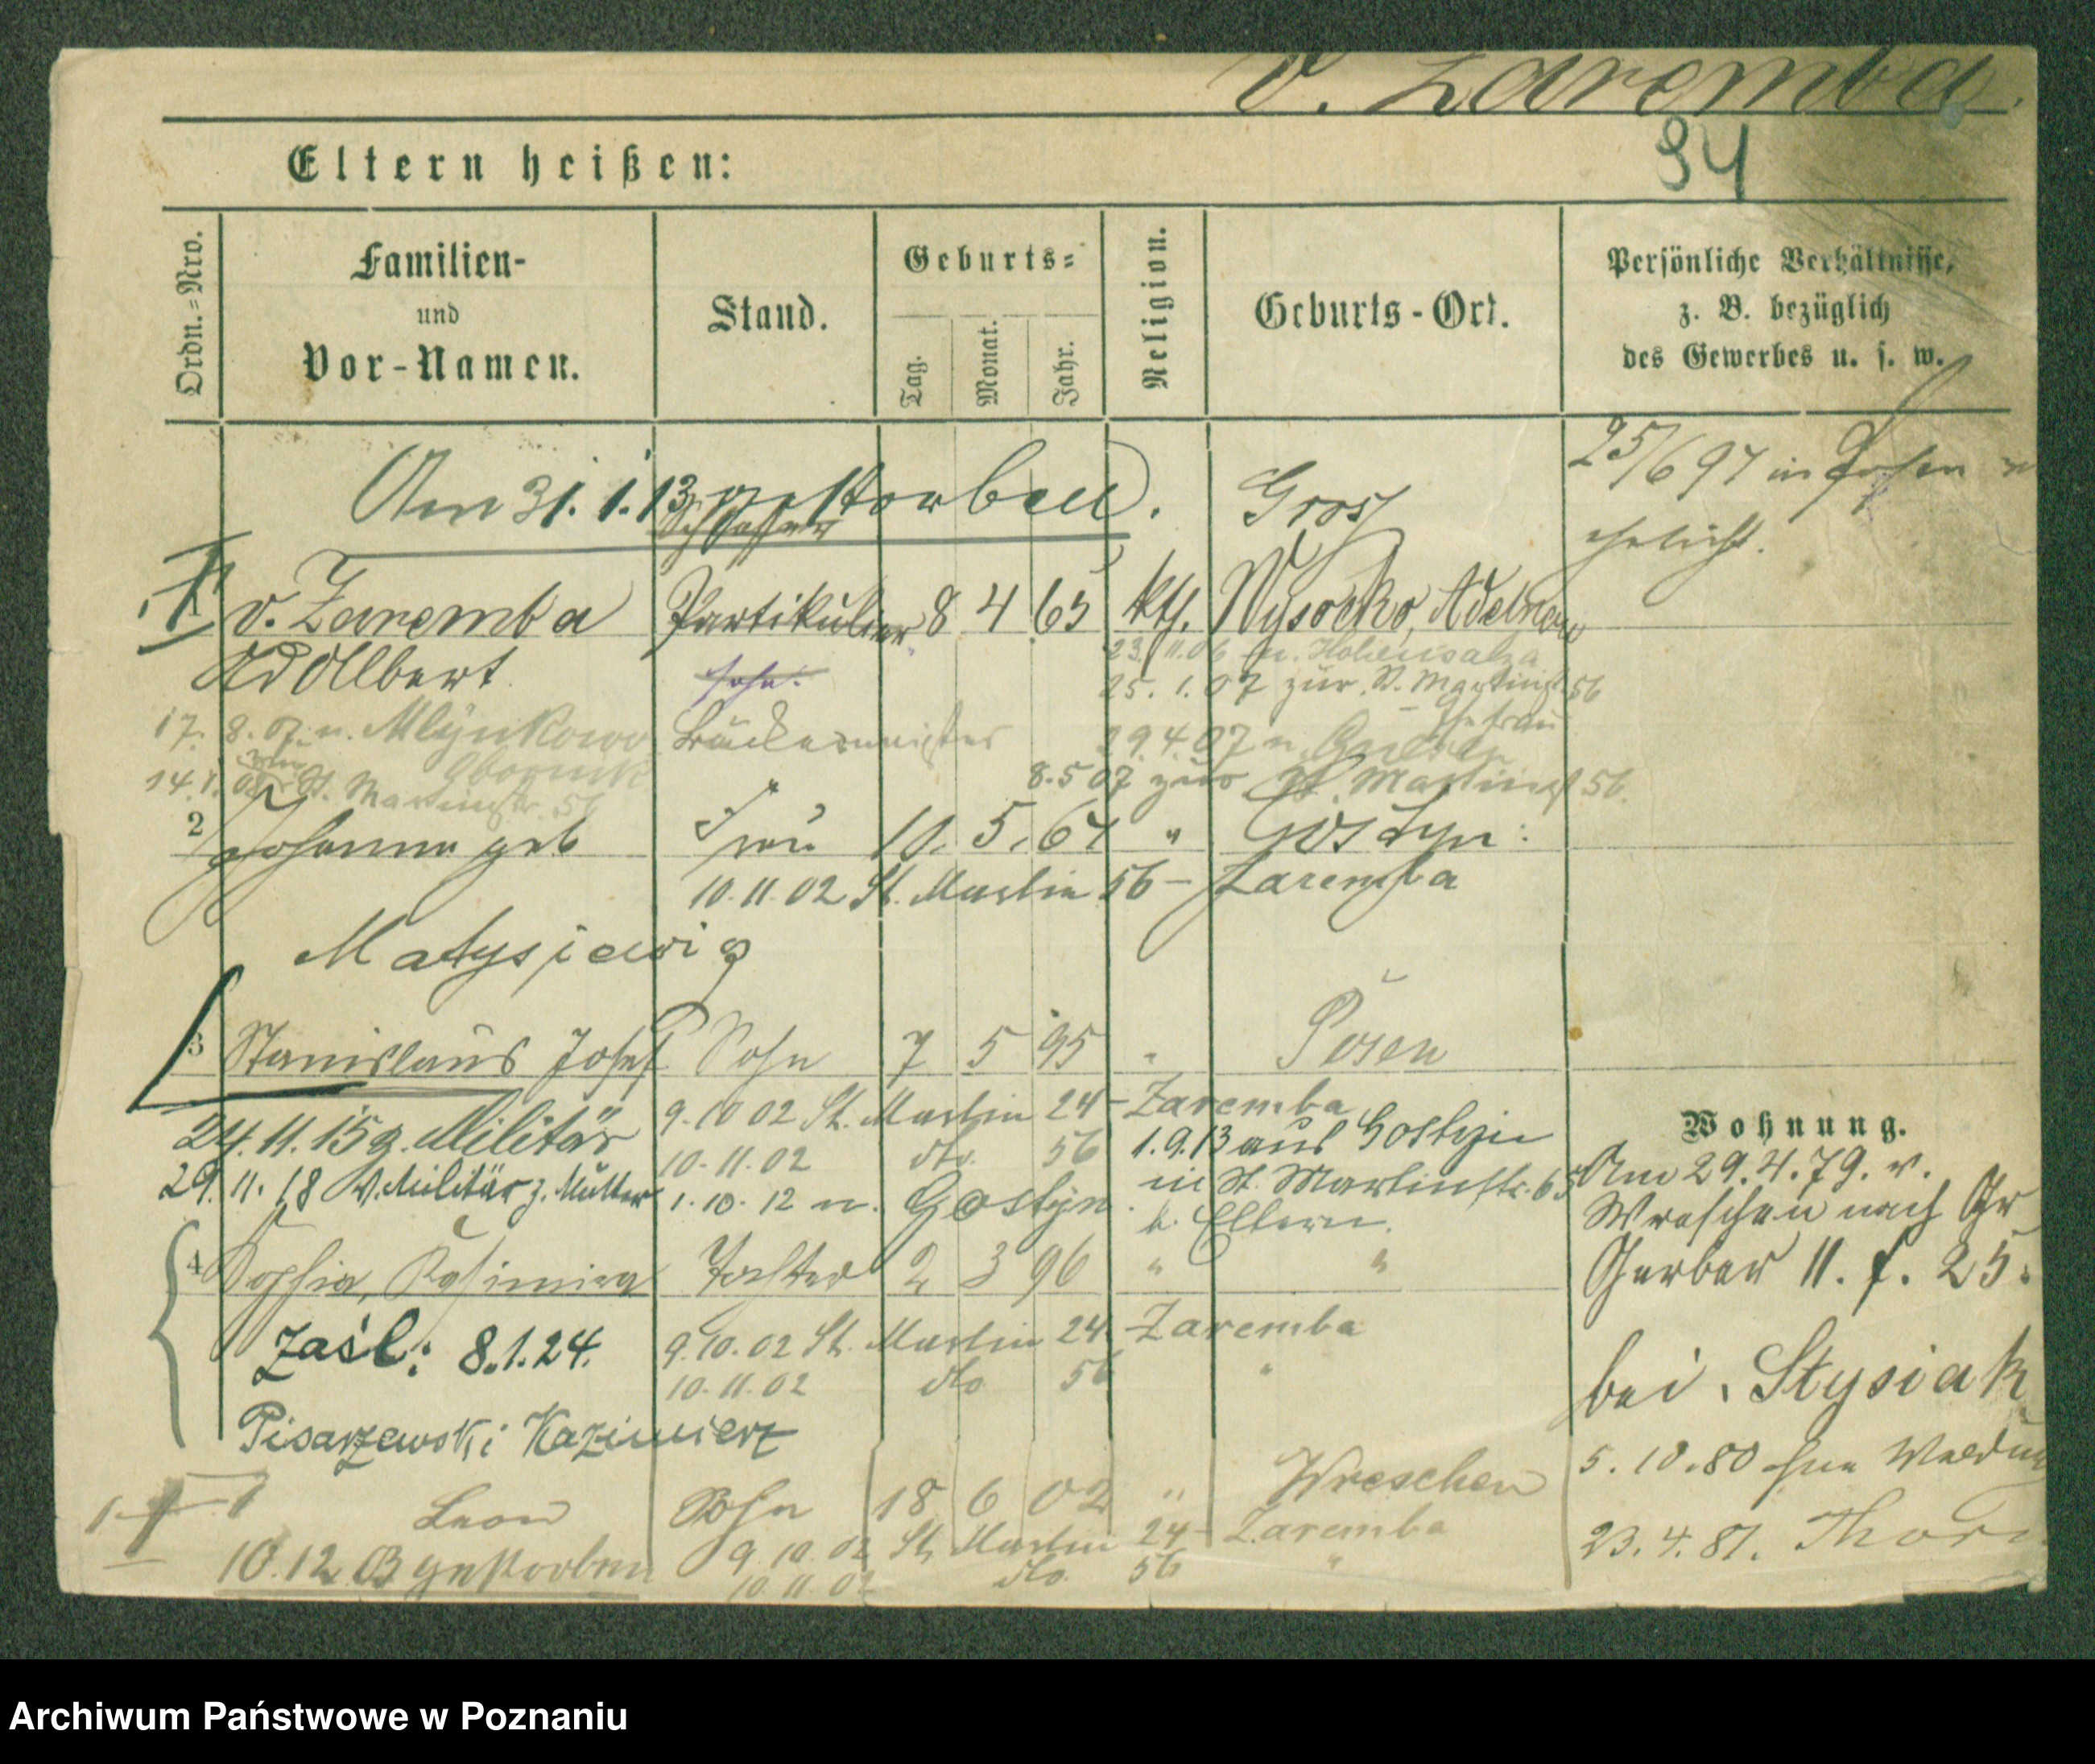 v. Zaremba.
94
Eltern heißen:
Ordn.=Nro.
Familien-
und
Vor-Namen.
Stand.
Geburts=
Tag.
Monat.
Jahr.
Religion.
Geburts-Ort.
Persönliche Verhältnisse,
z. B. bezüglich
des Gewerbes u. s. w.
Am 31.1.13 gestorben.
25/6 94 in Posen
ehelicht.
Schlosser
Gros
1 v. Zaremba Partikulier 8 4 65 kth. Wysocko, Adelnau
Adalbert
23/11.06 n. Hohensalza
25. 1. 07 zur. St. Martinst 56
Ehefrau
17. 8. 07. n. Mlynkowo
Obornik
29.4.07 n. Gnesen
14.1.08 St. Martinstr. 56
8.5 07 zur St. Martinst 56.
2 Johanna geb Frau 11. 5. 67 " Gostyn.
10.11.02 St. Martin 56 - Zaremba
Matysiewicz
3 Stanislaus Josef Sohn 7 5 95 " Posen
9.10 02 St. Martin 24 - Zaremba
10.11.02 dto. 56
1.10.12 n. Gostyn.
24.11.15 z. Militär
29.11.18 v. Militär z. Mutter
1.9.13 aus Gostyn
in St. Martinstr. 65
b. Eltern.
4 Sophia, Kasimira Tochter 2 3 96 " "
9.10.02 St. Martin 24. - Zaremba
10.11.02 dto 56 "
Zaśl: 8.1.24.
Pisarzewski Kazimierz
Leon Sohn 18 6 02 " Wreschen
9.10.02 St. Martin 24 - Zaremba
10.11.02 dto. 56 "
10.12.03 gestorben
Wohnung.
Am 29.4.79. v.
Wreschen nach Gr
Gerber 11. f. 25.
bei Stysiak
5.10.80
23.4.81. Thorn
Archiwum Państwowe w Poznaniu